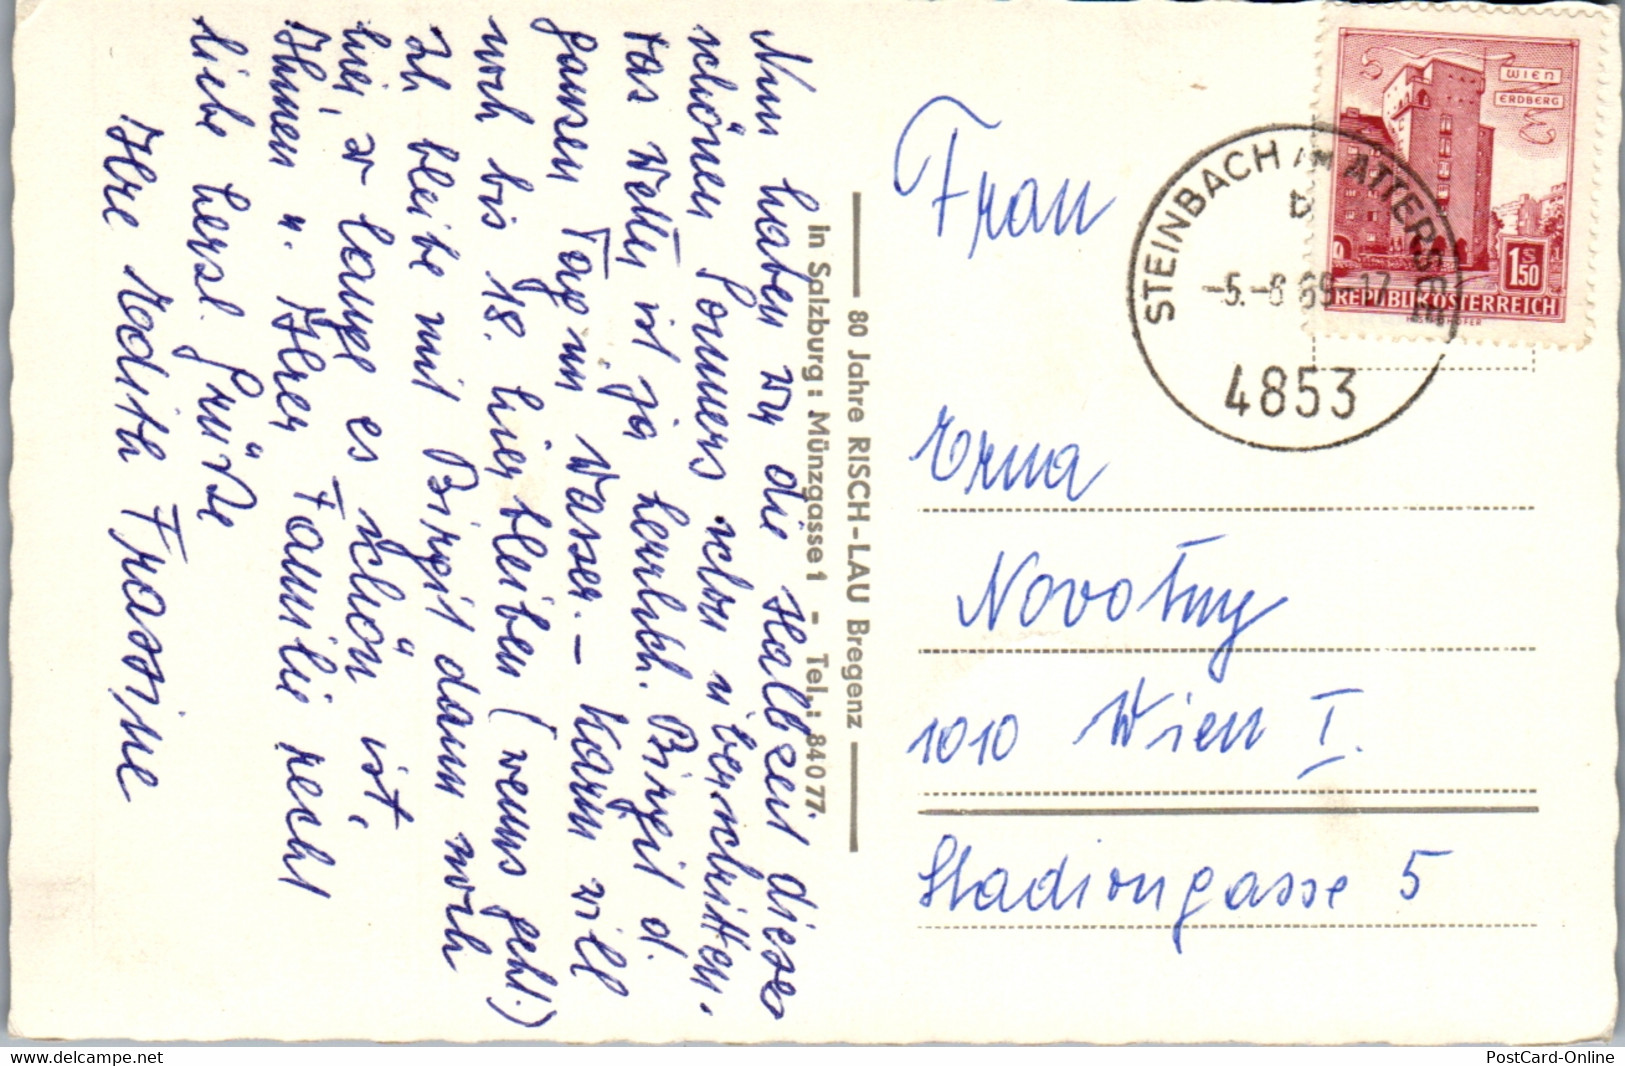 Nun haben wir die Halbzeit dieses
schönen Sommers schon überschritten.
Das Wetter ist ja herrlich. Birgit d.
ganzen Tag im Wasser. – Karin will
noch bis 18. hier bleiben (wenns geht.)
Ich bleibe mit Birgit dann noch
hier, so lange es schön ist.
Ihnen u. Ihrer Familie recht
liebe herzl. Grüße
Ihre Edith Frassine
80 Jahre RISCH-LAU Bregenz
In Salzburg: Münzgasse 1 - Tel.: 84077.
WIEN
ERDBERG
S
1 50
REPUBLIK ÖSTERREICH
STEINBACH AM ATTERSEE
b
-5.-8 69-17
4853
Frau
Erna
Novotny
1010 Wien I.
Stadiongasse 5
www.delcampe.net
PostCard-Online